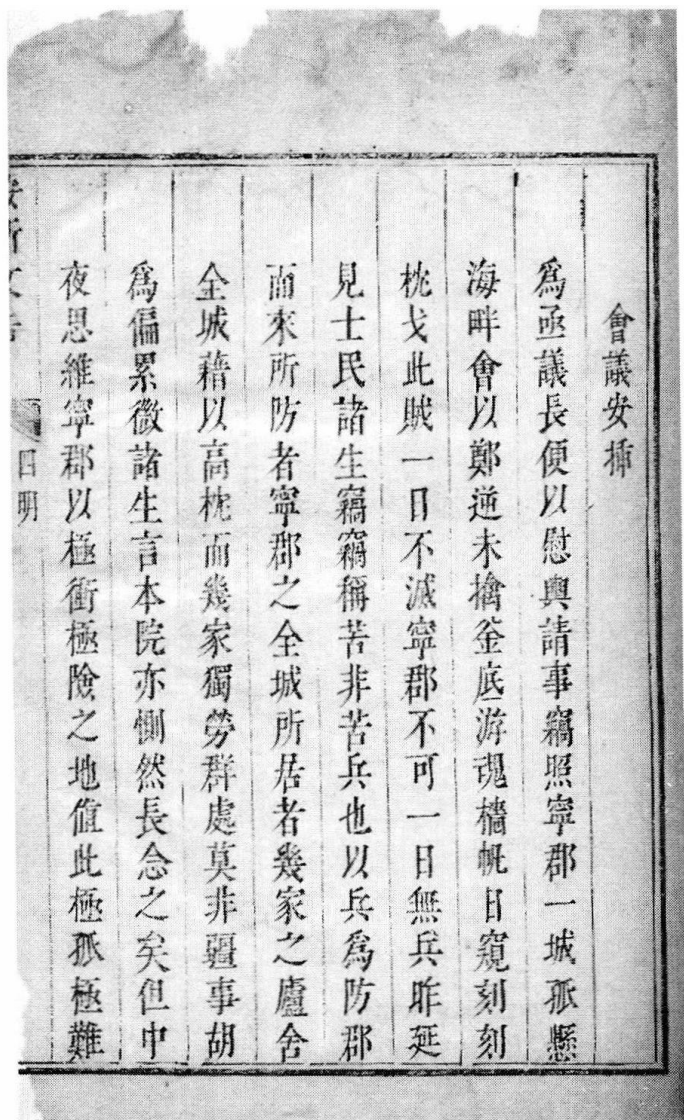 會議安插
為亟議長便以慰輿請事竊照寧郡一城孤懸
海畔會以鄭逆未擒釜底游魂檣帆日窺刻刻
枕戈此賊一日不滅寧郡不可一日無兵昨延
見士民諸生竊竊稱苦非苦兵也以兵為防郡
而來所防者寧郡之全城所居者幾家之廬舍
全城藉以高枕而幾家獨勞群處莫非疆事胡
為偏累微諸生言本院亦惻然長念之矣但中
夜思維寧郡以極衝極險之地值此極孤極難
文告
四明